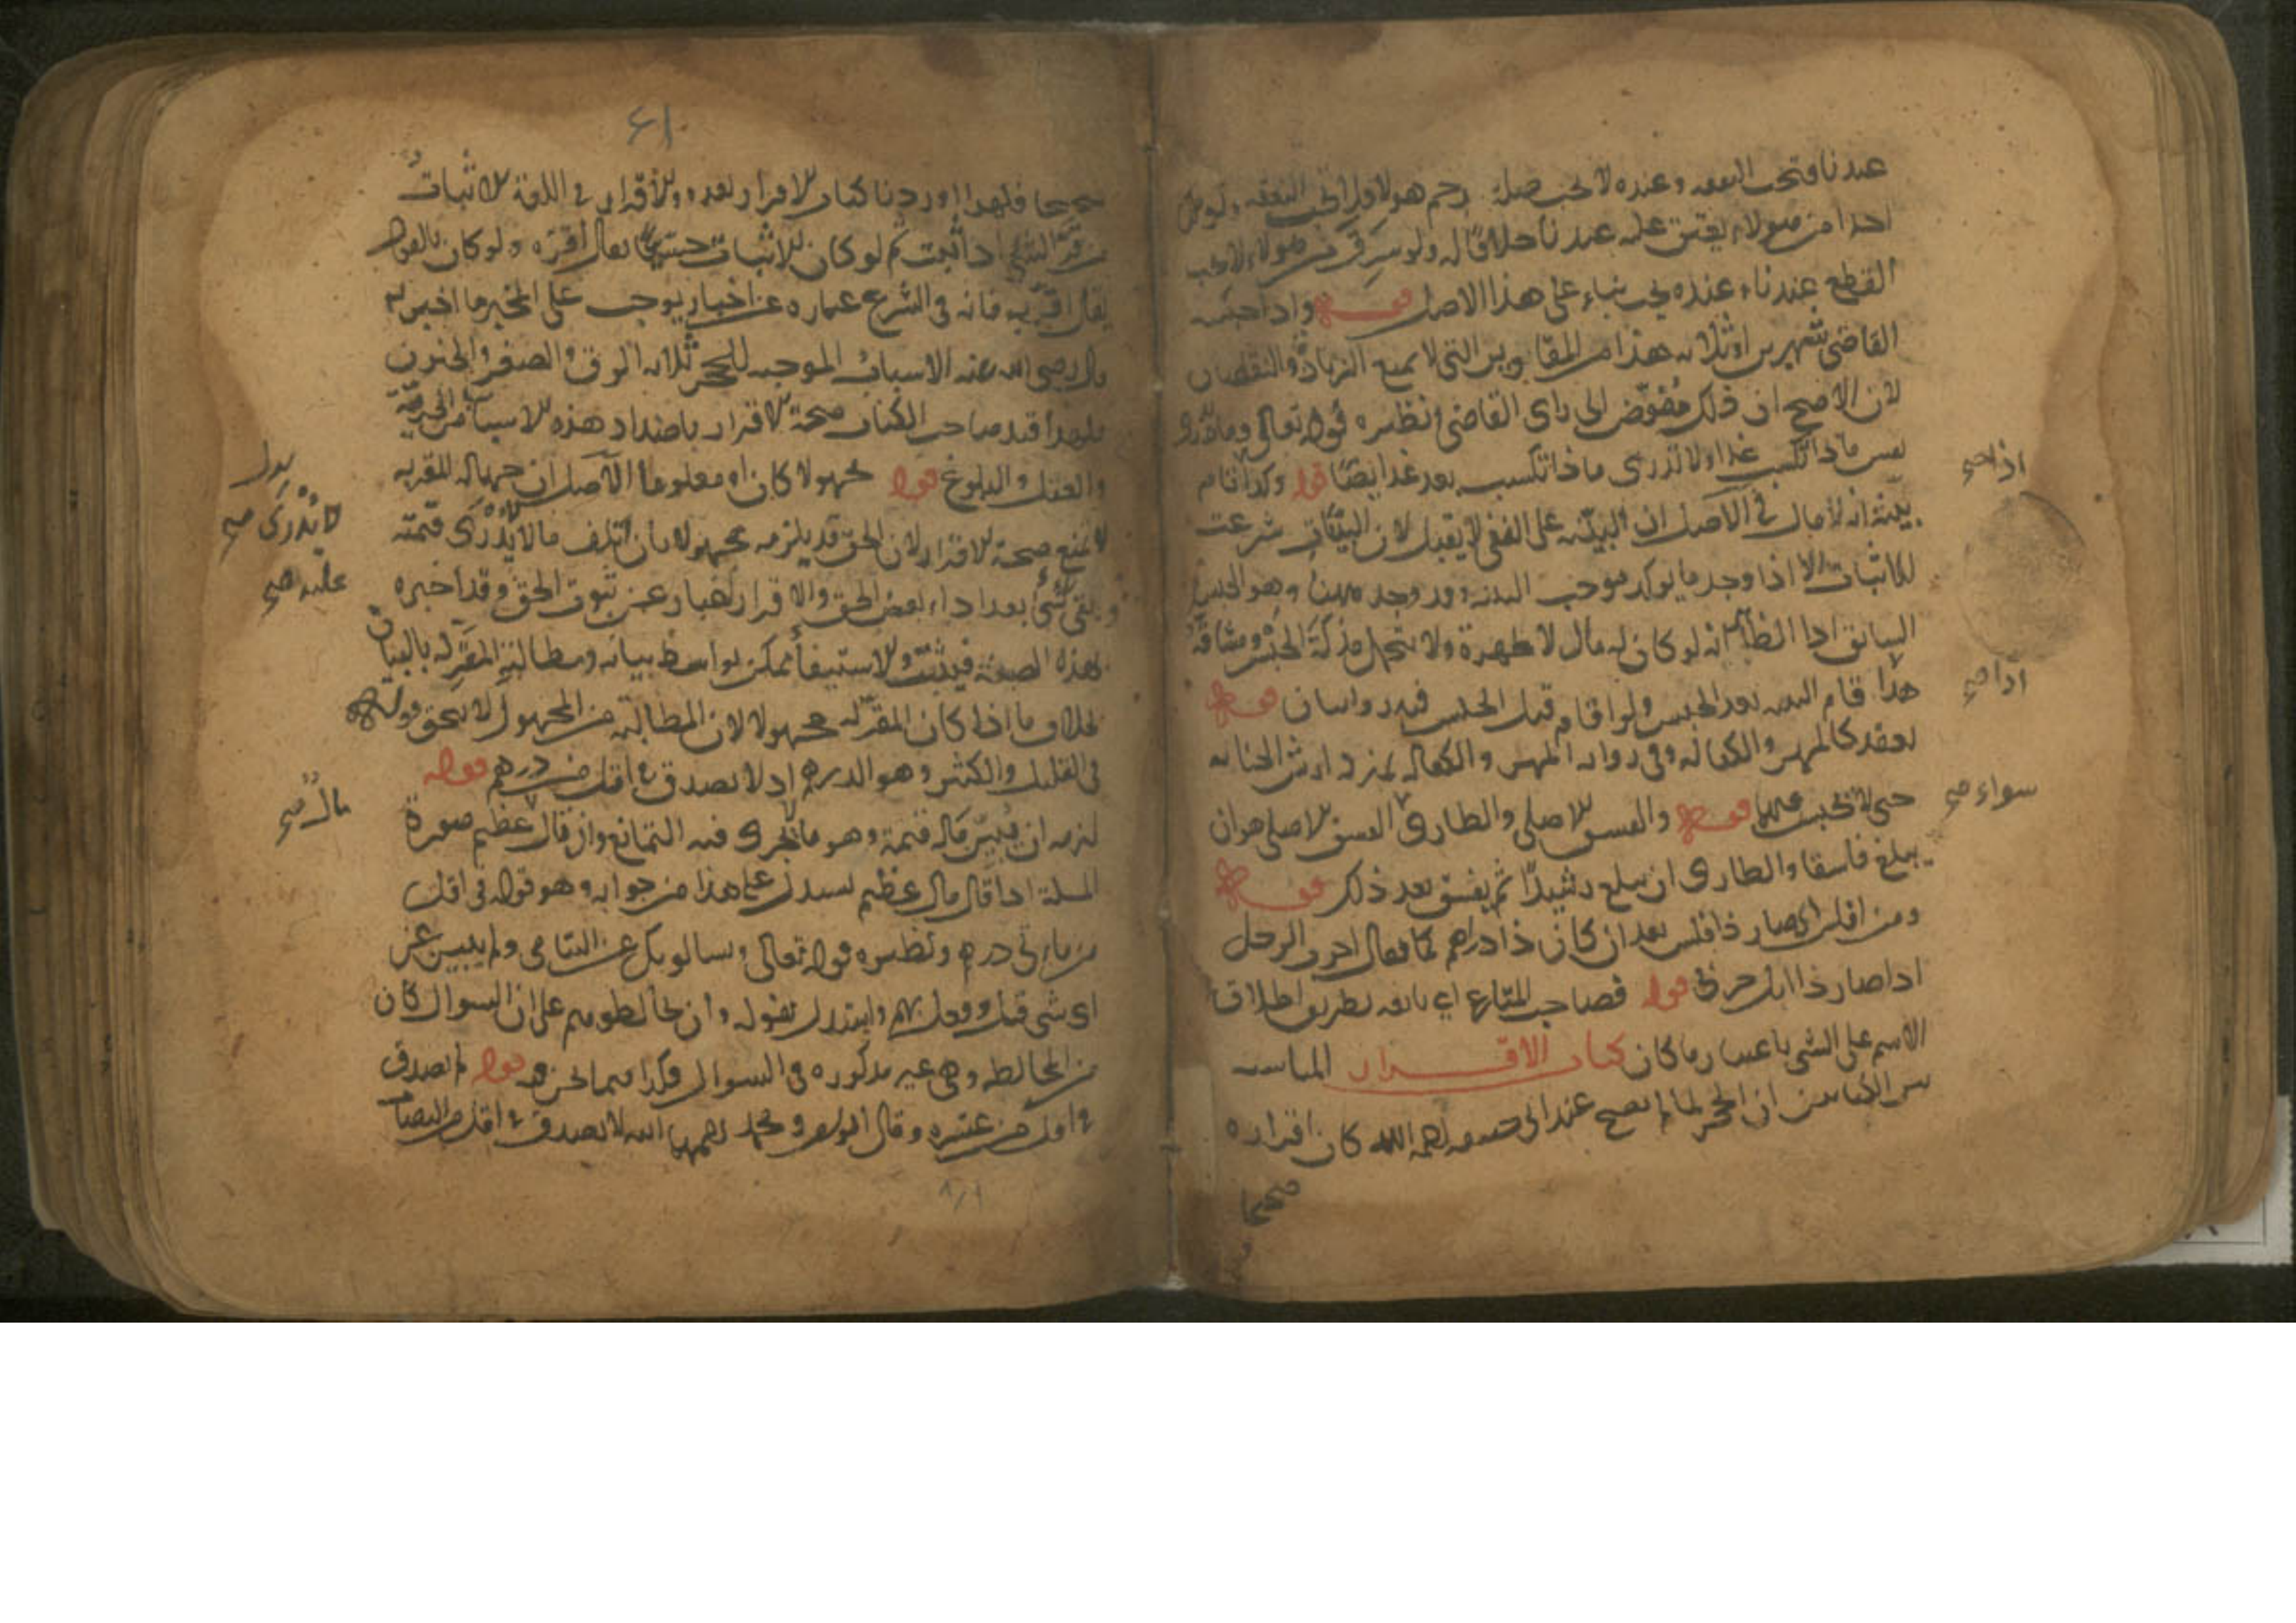 عندنا فتجب النفقه وعنده لا تجب صلة رحم هولاء ولا تجب النفقه ولو ملك
احدا من هولاء يعتق عليه عندنا خلافا له ولو سرق من هولاء لا يجب
القطع عندنا وعنده يجب بناء على هذا الاصل قوله واذا حبسه
القاضى شهرين او ثلاثه هذا من المقادير التى لا يمنع الزيادة والنقصان
لان الاصح ان ذلك مفوض الى راى القاضى ونظيره قوله تعالى وما تدرى
نفس ماذا تكسب غدا ولا تدرى ماذا تكسب بعد غد ايضا قوله وكذا اقام
بينة انه لا مال له الاصل ان البينه على النفى لا يقبل لان البينات شرعت
للاثبات الا اذا وجد ما يوكد موجب البينه وقد وجد ههنا وهو الحبس
السابق اذ الظاهر انه لو كان له مال لاظهره ولا يتحمل مذلة الحبس ومشاقه
هذا قام البينه بعد الحبس ولو اقام قبل الحبس فيه روايتان قوله
بعقد كالمهر والكفاله وفى روايه المهر والكفاله بمنزله ارش الجنايه
حتى لا يحبس عليها قوله والفسق الاصلى والطارى الفسق الاصلى هو ان
يبلغ فاسقا والطارى ان يبلغ رشيدا ثم يفسق بعد ذلك قوله
ومن افلس اى صار ذا فلس بعد ان كان ذا دراهم كما يقال اجرب الرجل
اذا صار ذا ابل جربى قوله فصاحب المتاع اى بائعه بطريق اطلاق
الاسم على الشى باعتبار ما كان كتاب الاقرار المناسبه
بين الكتابين ان الحجر لما لم يصح عند ابى حنيفه رحمه الله كان اقراره
صحيحا
اذا صح
اذا صح
سواء صح
٦١
صحيحا فلهذا اوردنا كتاب الاقرار بعده والاقرار فى اللغة الاثبات
من قر الشى اذا ثبت ثم لو كان الاثبات حسيا يقال اقره ولو كان بالقول
يقال اقر به فانه فى الشرع عباره عن اخبار يوجب على المخبر ما اخبر به
قال رضى الله عنه الاسباب الموجبه للحجر ثلاثه الرق والصغر والجنون
فلهذا قيد صاحب الكتاب صحة الاقرار باضداد هذه الاسباب من الحرية
والعقل والبلوغ قوله مجهولا كان او معلوما الاصل ان جهاله المقر به
لا تمنع صحة الاقرار لان الحق قد يلزمه مجهولا بان اتلف مالا لا يدرى قيمته
وبقى شى بعد اداء بعض الحق والاقرار اخبار عن ثبوت الحق وقد اخبره
بهذه الصفة فيثبت والاستيفاء ممكن بواسطة بيانه ومطالبة المقر له بالبيان
بخلاف ما اذا كان المقر له مجهولا لان المطالبة من المجهول لا يتحقق قوله
فى القليل والكثير وهو الدرهم اذ لا يصدق فى اقل من درهم قوله
لزمه ان يبين ماله قيمة وهو ما يجرى فيه التمانع وان قال عظيم صورة
المسلة اذا قال مال عظيم يستدل على هذا من جوابه وهو قوله فى اقل
من مايتى درهم ونظيره قوله تعالى ويسالونك عن اليتامى ولم يبين عن
اى شى قيل وفعل بهم واستدل بقوله وان تخالطوهم على ان السوال كان
عن المخالطه وهى غير مذكوره فى السوال وكذا فيما نحن فيه قوله لم يصدق
فى اقل من عشره وقال ابو يوسف ومحمد رحمهما الله لا يصدق فى اقل من النصاب
لا يدرى صح
عليه صح
مال صح